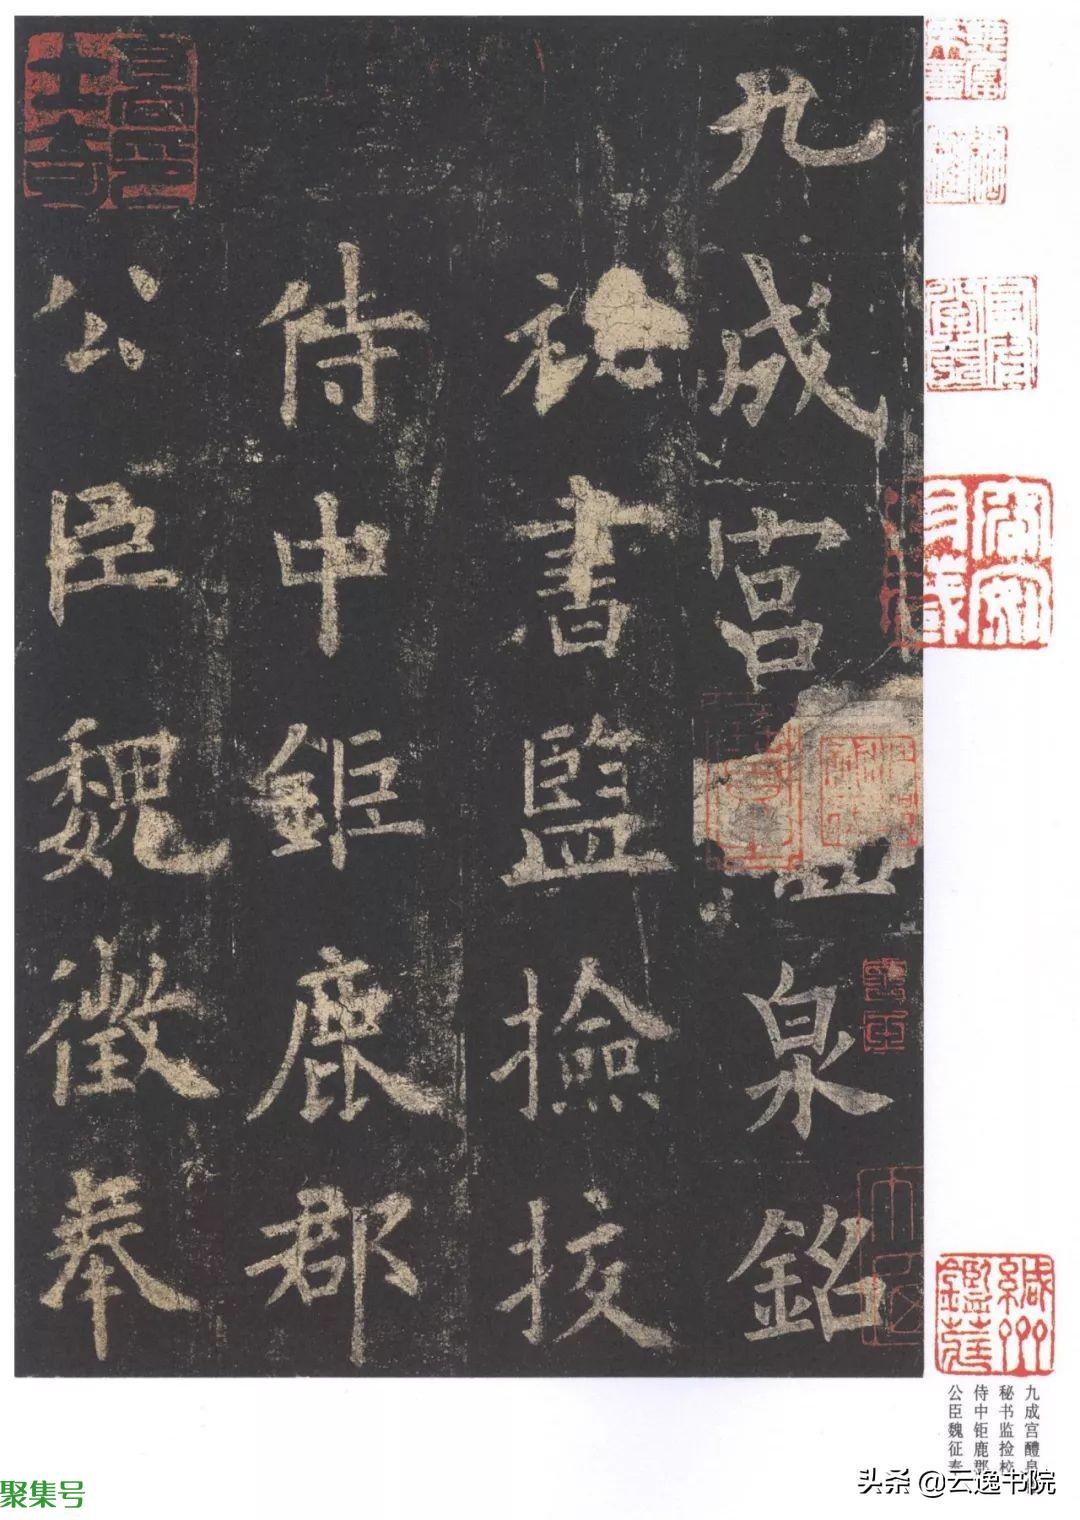 九成宮泉銘
祕書監撿挍
侍中鉅鹿郡
公臣魏徵奉
高士奇印
九成宫醴泉
秘书监捡校
侍中钜鹿郡
公臣魏征奉
头条 @云逸书院
聚集号